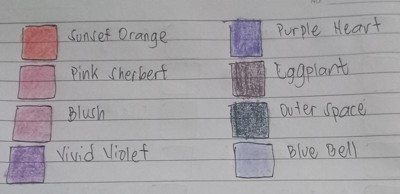 Sunset Orange
Pink Sherbert
Blush
Vivid Violet
Purple Heart
Eggplant
Outer Space
Blue Bell